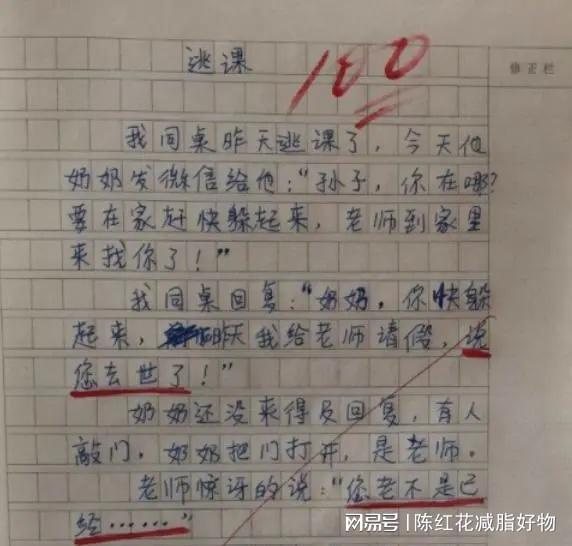 逃课
100
修正栏
我同桌昨天逃课了，今天他
奶奶发微信给他：“孙子，你在哪？
要在家赶快躲起来，老师到家里
来找你了！”
我同桌回复：“奶奶，你快躲
起来，昨天我给老师请假，说
您去世了！”
奶奶还没来得及回复，有人
敲门，奶奶把门打开，是老师。
老师惊讶的说：“您老不是已
经……”
网易号 | 陈红花减脂好物